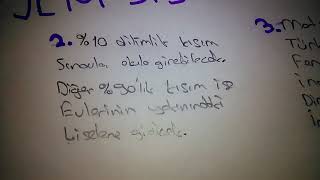 2. %10 dilimlik kısım
Sınavla okula girebilecek.
Diğer %90'lık kısım ise
Evlerinin yakınındaki
Liselere girecek.
3. Mat
Türk
Fen